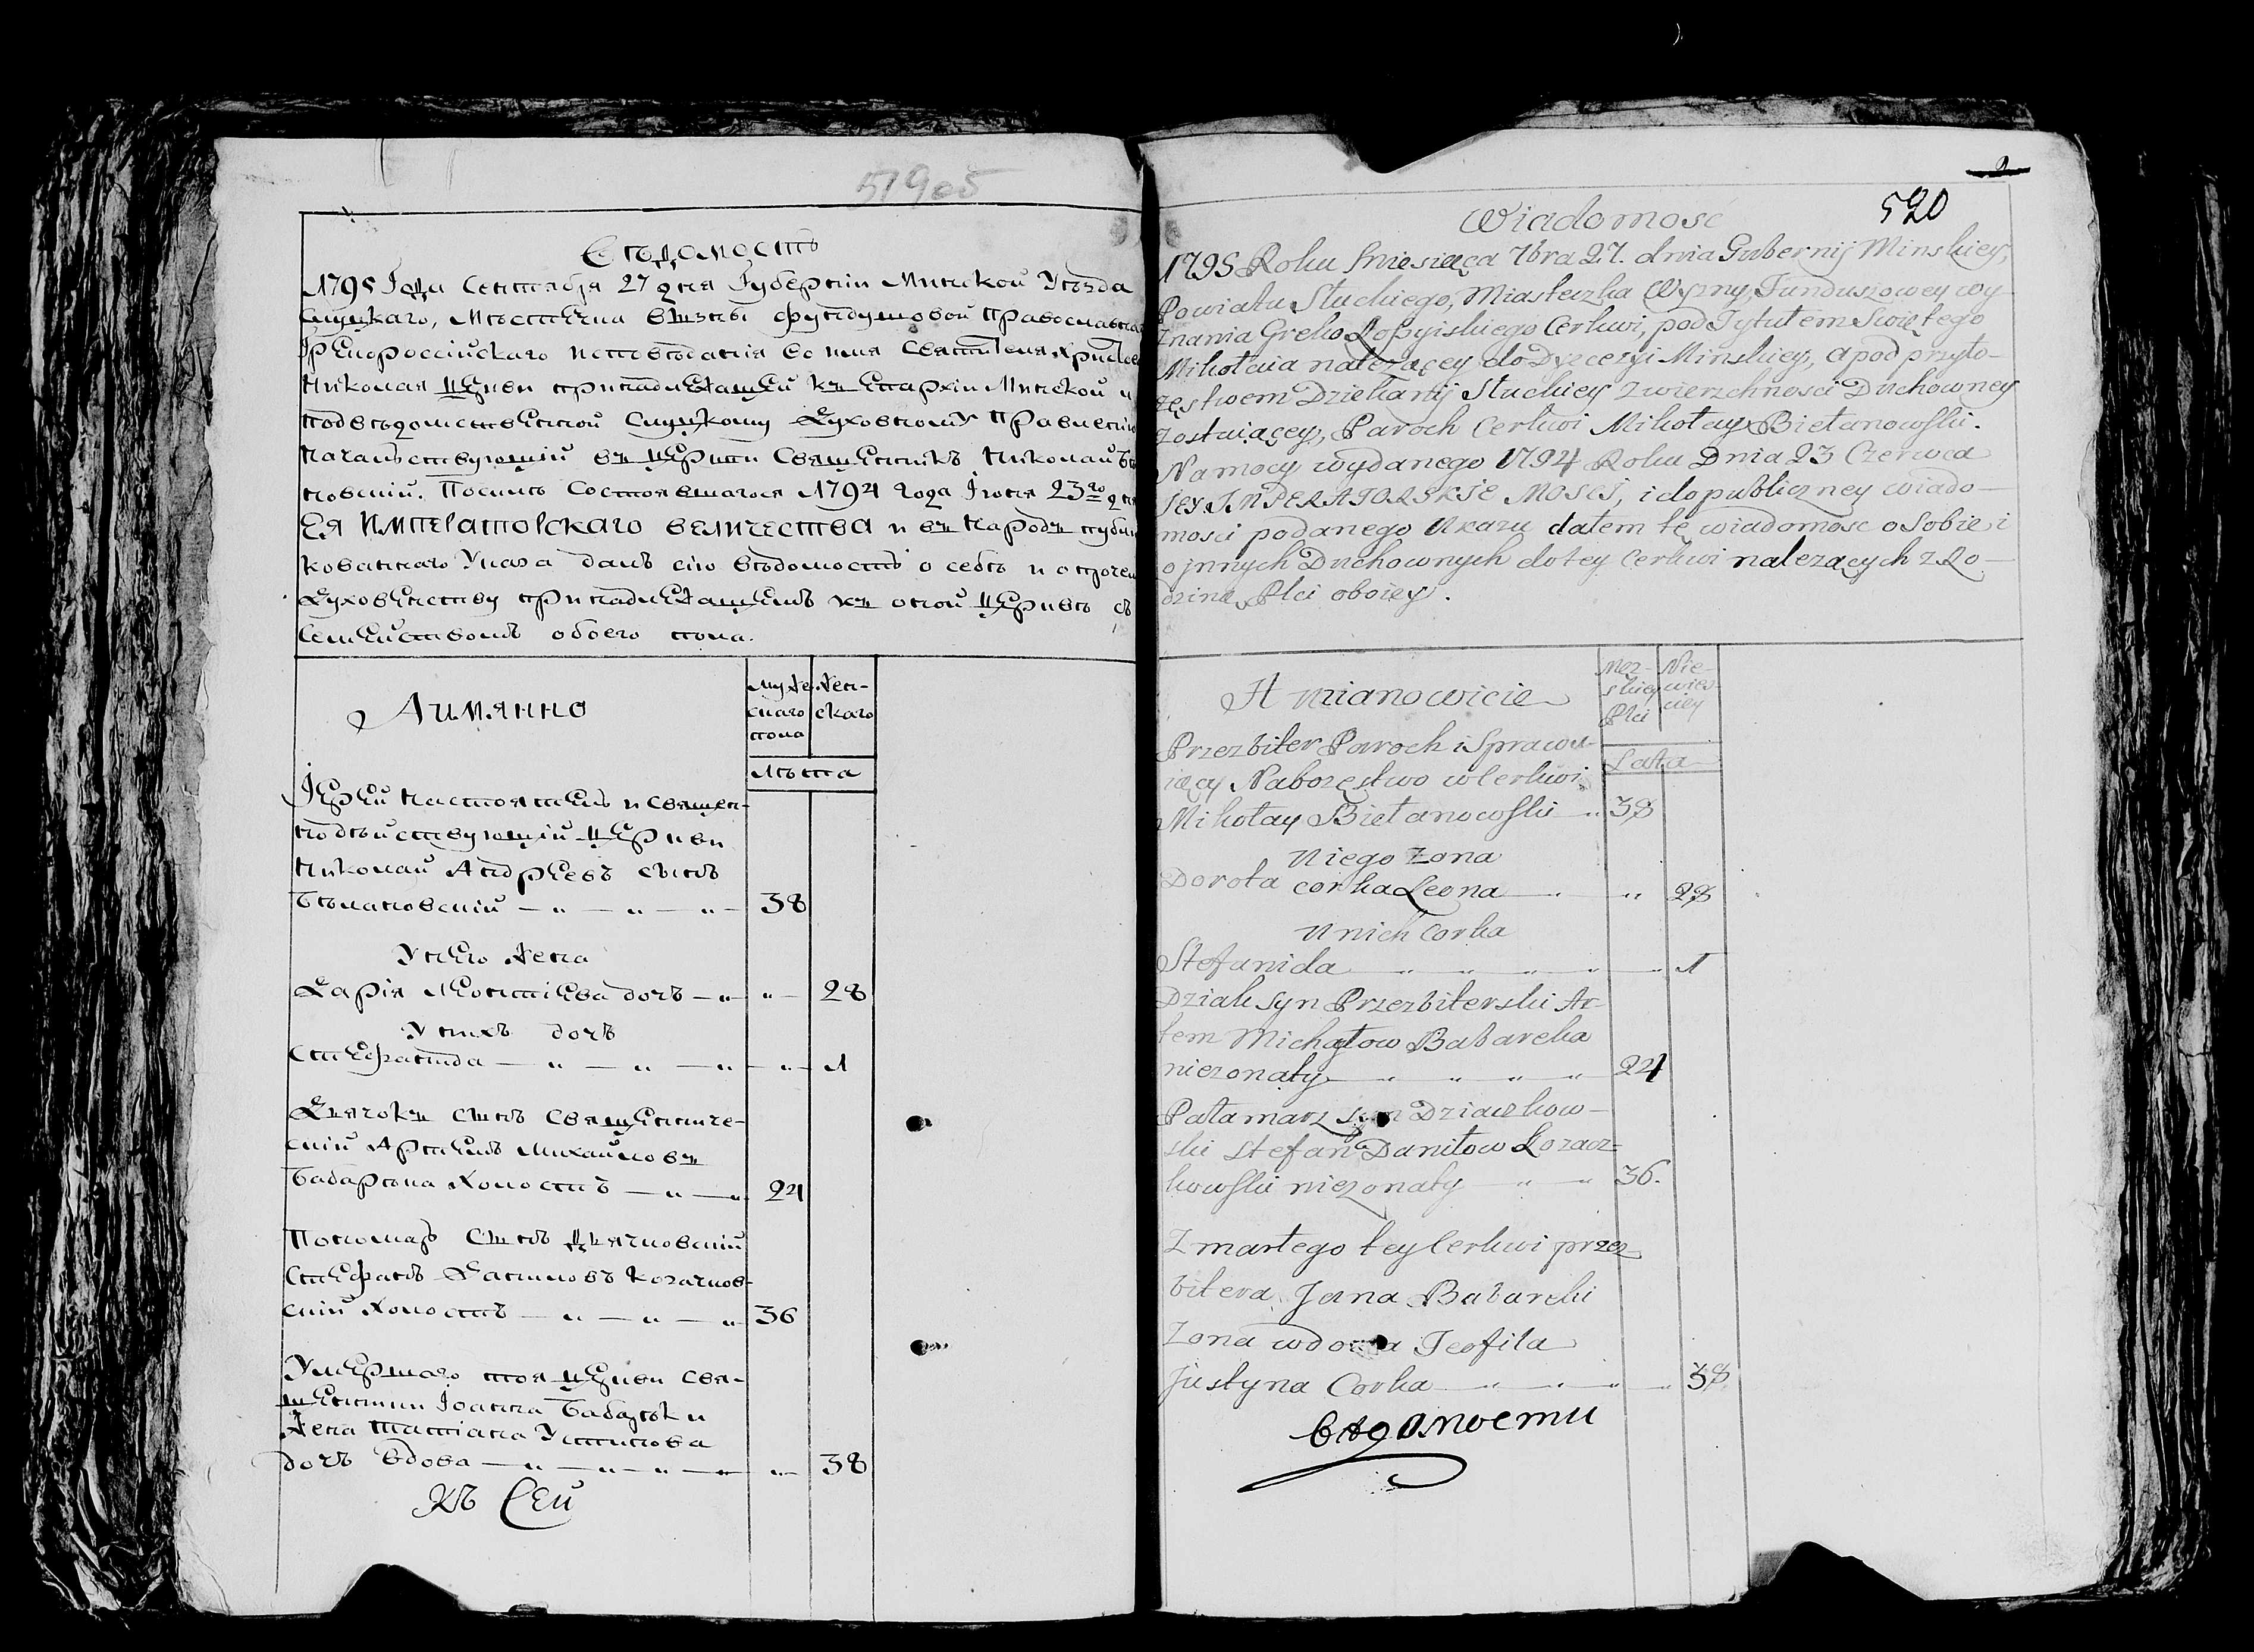 519об
Вѣдомость
1795 Года Сентября 27 дня Губернiи Минской Уѣзда
Слуцкаго, Мѣстечка Вызны фундушовой православна
Грекороссiйскаго исповѣданiя во имя Святителя Христова
Николая церкви принадлежащей къ Епархiи Минской и
подвѣдомственной Слуцкому Духовному Правленiю
Началствующiй въ церкви Священникъ Николай Бѣ
новскiй. По силѣ Состоявшагося 1794 года Iюня 23го дня
ЕЯ ИМПЕРАТОРСКАГО ВЕЛИЧЕСТВА и въ народъ публи
кованнаго Указа далъ сiю вѣдомость о себѣ и о прочем
Духовенству принадлежащемъ къ оной церквѣ съ
Семействомъ обоего пола.
Аимянно
Мужескаго пола
Женскаго
Лѣта
Iерей настоятель и священ-
нодѣйствующiй церкви
Николай Андреевъ сынъ
Бѣлановскiй — „ — „ — „ — 38
У него жена
Дарiя Леонтiева дочъ — „ — „ — 28
У нихъ дочъ
Стефанида — „ — „ — „ — „ — 1
Дьячокъ сынъ священниче-
скiй Артемъ Михайловъ
Бабарѣка холостъ — „ — „ 24
Пономарь сынъ дьячковскiй
Стефанъ Даниловъ Козачков-
скiй холостъ — „ — „ — „ 36
Умершаго тоя церкви свя-
щенника Iоанна Бабарѣки
жена Татiана Устинова
дочъ вдова — „ — „ — „ — „ — 38
Къ Сей
520
Wiadomosć
1795 Roku Miesiąca 7bra 27. dnia Gubernij Minskiey,
Powiatu Sluckiego, Miasteczka Wyzny, Funduszowey wy-
znania Greko Rossyiskiego Cerkwi, pod Tytułem Swiętego
Mikołaia należącey do Dyecezyi Minskiey, a pod przyło-
żęstwem Dziekanij Słuckiey Zwierzchnosci Duchowney
zostaiącey, Paroch Cerkwi Mikołay Biełanowski.
Na mocy wydanego 1794 Roku Dnia 23 Czerwca
JEY IMPERATORSKJE MOSCJ, i do publiczney wiado-
mosci podanego Ukazu dałem tę wiadomosc o Sobie i
o jnnych Duchownych do tey Cerkwi należących z Ro-
dziną Płci oboiey.
A mianowicie
Męz-
skiey
Płci
Nie-
wies
ciey
Lata
Przezbiter Paroch i Sprawu-
iący Nabozęstwo w Cerkwi
Mikołay Biełanowski — „ 38
U niego Zona
Dorota corka Leona — „ — „ 28
U nich Corka
Stefanida — „ — „ — „ — „ — „ 1
Dziak syn Przezbiterski Ar-
tem Michałow Babareka
niezonaty — „ — „ — „ — „ 24
Pałamarz syn Dziaczkow-
ski Stefan Daniłow Kozacz-
kowski niezonaty — „ — „ 36.
Zmarłego tey Cerkwi prze-
bitera Jana Babareki
Zona wdowa Teofila
Justyna Corka — „ — „ — „ — „ 38